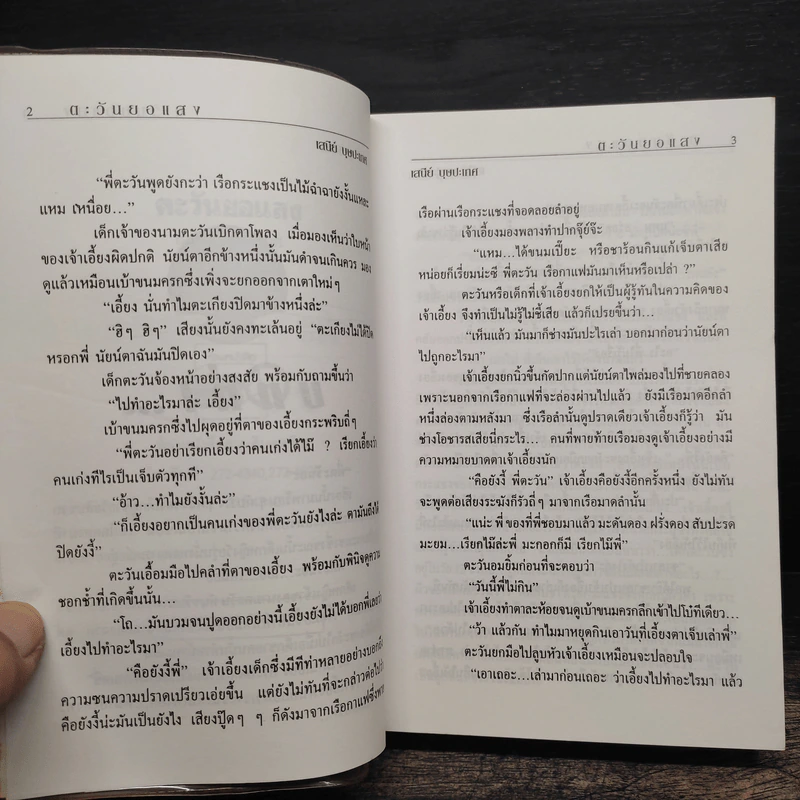 2 ตะวันยอแสง
เสนีย์ บุษปะเกศ
“พี่ตะวันพูดยังกะว่า เรือกระแชงเป็นไม้ฉำฉายังงั้นแหละ
แหม เหนื่อย...”
เด็กเจ้าของนามตะวันเบิกตาโพลง เมื่อมองเห็นว่าใบหน้า
ของเจ้าเอี้ยงผิดปกติ นัยน์ตาอีกข้างหนึ่งนั้นมันดำจนเกินควร มอง
ดูแล้วเหมือนเบ้าขนมครกซึ่งเพิ่งจะยกออกจากเตาใหม่ๆ
“เอี้ยง นั่นทำไมตะเกียงปิดมาข้างหนึ่งล่ะ”
“ฮิๆ ฮิๆ” เสียงนั้นยังคงทะเล้นอยู่ “ตะเกียงไม่ได้ปิด
หรอกพี่ นัยน์ตาฉันมันปิดเอง”
เด็กตะวันจ้องหน้าอย่างสงสัย พร้อมกับถามขึ้นว่า
“ไปทำอะไรมาล่ะ เอี้ยง”
เบ้าขนมครกซึ่งไปผุดอยู่ที่ตาของเอี้ยงกระพริบถี่ๆ
“พี่ตะวันอย่าเรียกเอี้ยงว่าคนเก่งได้ไม๊ ? เรียกเอี้ยงว่า
คนเก่งทีไรเป็นเจ็บตัวทุกที”
“อ้าว...ทำไมยังงั้นล่ะ”
“ก็เอี้ยงอยากเป็นคนเก่งของพี่ตะวันยังไงล่ะ ตามันถึงได้
ปิดยังงี้”
ตะวันเอื้อมมือไปคลำที่ตาของเอี้ยง พร้อมกับพินิจดูความ
ชอกช้ำที่เกิดขึ้นนั้น...
“โถ...มันบวมจนปูดออกอย่างนี้ เอี้ยงยังไม่ได้บอกพี่เลยว่า
เอี้ยงไปทำอะไรมา”
“คือยังงี้พี่” เจ้าเอี้ยงเด็กซึ่งมีทีท่าหลายอย่างบอกถึง
ความซนความปราดเปรียวเอ่ยขึ้น แต่ยังไม่ทันที่จะกล่าวต่อไปว่า
คือยังงี้น่ะมันเป็นยังไง เสียงปู๊ด ๆ ๆ ก็ดังมาจากเรือกาแฟซึ่งพาย
ตะวันยอแสง 3
เสนีย์ บุษปะเกศ
เรือผ่านเรือกระแชงที่จอดลอยลำอยู่
เจ้าเอี้ยงมองพลางทำปากจุ๊ย์จ๊ะ
“แหม...ได้ขนมเปี๊ยะ หรือชาร้อนกินแก้เจ็บตาเสีย
หน่อยก็เรี่ยมน่ะซี พี่ตะวัน เรือกาแฟมันมาเห็นหรือเปล่า ?”
ตะวันหรือเด็กที่เจ้าเอี้ยงยกให้เป็นผู้รู้ทันในความคิดของ
เจ้าเอี้ยง จึงทำเป็นไม่รู้ไม่ชี้เสีย แล้วก็เปรยขึ้นว่า...
“เห็นแล้ว มันมาก็ช่างมันปะไรเล่า บอกมาก่อนว่านัยน์ตา
ไปถูกอะไรมา”
เจ้าเอี้ยงยกนิ้วขึ้นกัดปากแต่นัยน์ตาไพล่มองไปที่ชายคลอง
เพราะนอกจากเรือกาแฟที่จะล่องผ่านไปแล้ว ยังมีเรือมาดอีกลำ
หนึ่งล่องตามหลังมา ซึ่งเรือลำนั้นดูปราดเดียวเจ้าเอี้ยงก็รู้ว่า มัน
ช่างโอชารสเสียนี่กระไร... คนที่พายท้ายเรือมองดูเจ้าเอี้ยงอย่างมี
ความหมายบาดตาเจ้าเอี้ยงนัก
“คือยังงี้ พี่ตะวัน” เจ้าเอี้ยงคือยังงี้อีกครั้งหนึ่ง ยังไม่ทัน
จะพูดต่อเสียงระฆังก็รัวถี่ๆ มาจากเรือมาดลำนั้น
“แน่ะ พี่ ของที่พี่ชอบมาแล้ว มะดันดอง ฝรั่งดอง สับปะรด
มะยม...เรียกไม๊ล่ะพี่ มะกอกก็มี เรียกไม๊พี่”
ตะวันอมยิ้มก่อนที่จะตอบว่า
“วันนี้พี่ไม่กิน”
เจ้าเอี้ยงทำตาละห้อยจนดูเบ้าขนมครกลึกเข้าไปโบ๋ทีเดียว...
“ว้า แล้วกัน ทำไมมาหยุดกินเอาวันที่เอี้ยงตาเจ็บเล่าพี่”
ตะวันยกมือไปลูบหัวเจ้าเอี้ยงเหมือนจะปลอบใจ
“เอาเถอะ...เล่ามาก่อนเถอะ ว่าเอี้ยงไปทำอะไรมา แล้ว